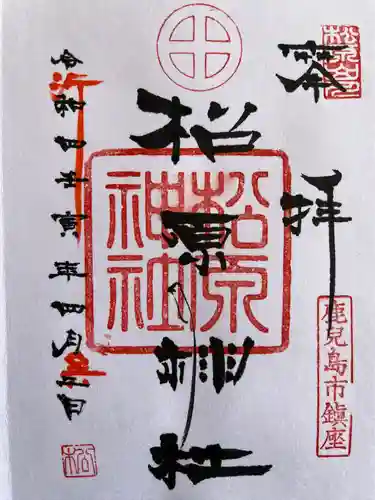 奉拝
鹿兒島市鎮座
松原神社
松原神社
令和四壬寅年四月五日
松